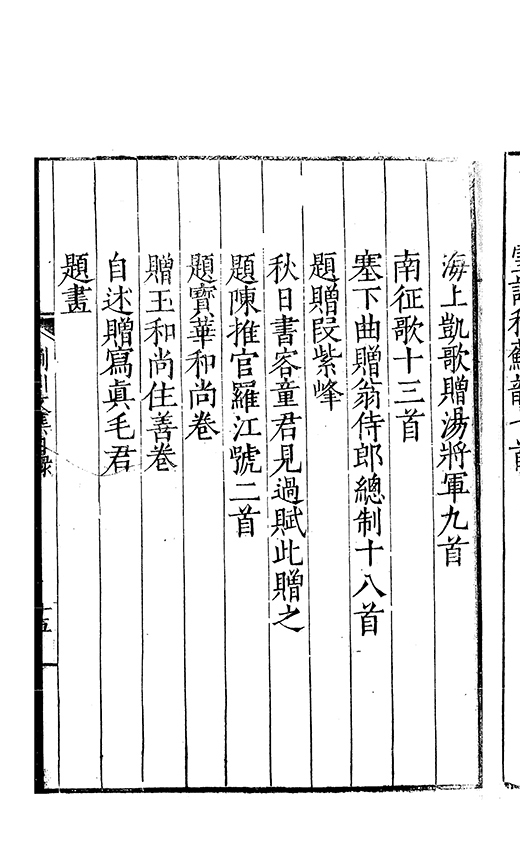 海上凱歌贈湯將軍九首
南征歌十三首
塞下曲贈翁侍郎總制十八首
題贈段紫峰
秋日書客童君見過賦此贈之
題陳推官羅江號二首
題寶華和尚卷
贈玉和尚住善卷
自述贈寫眞毛君
題畫